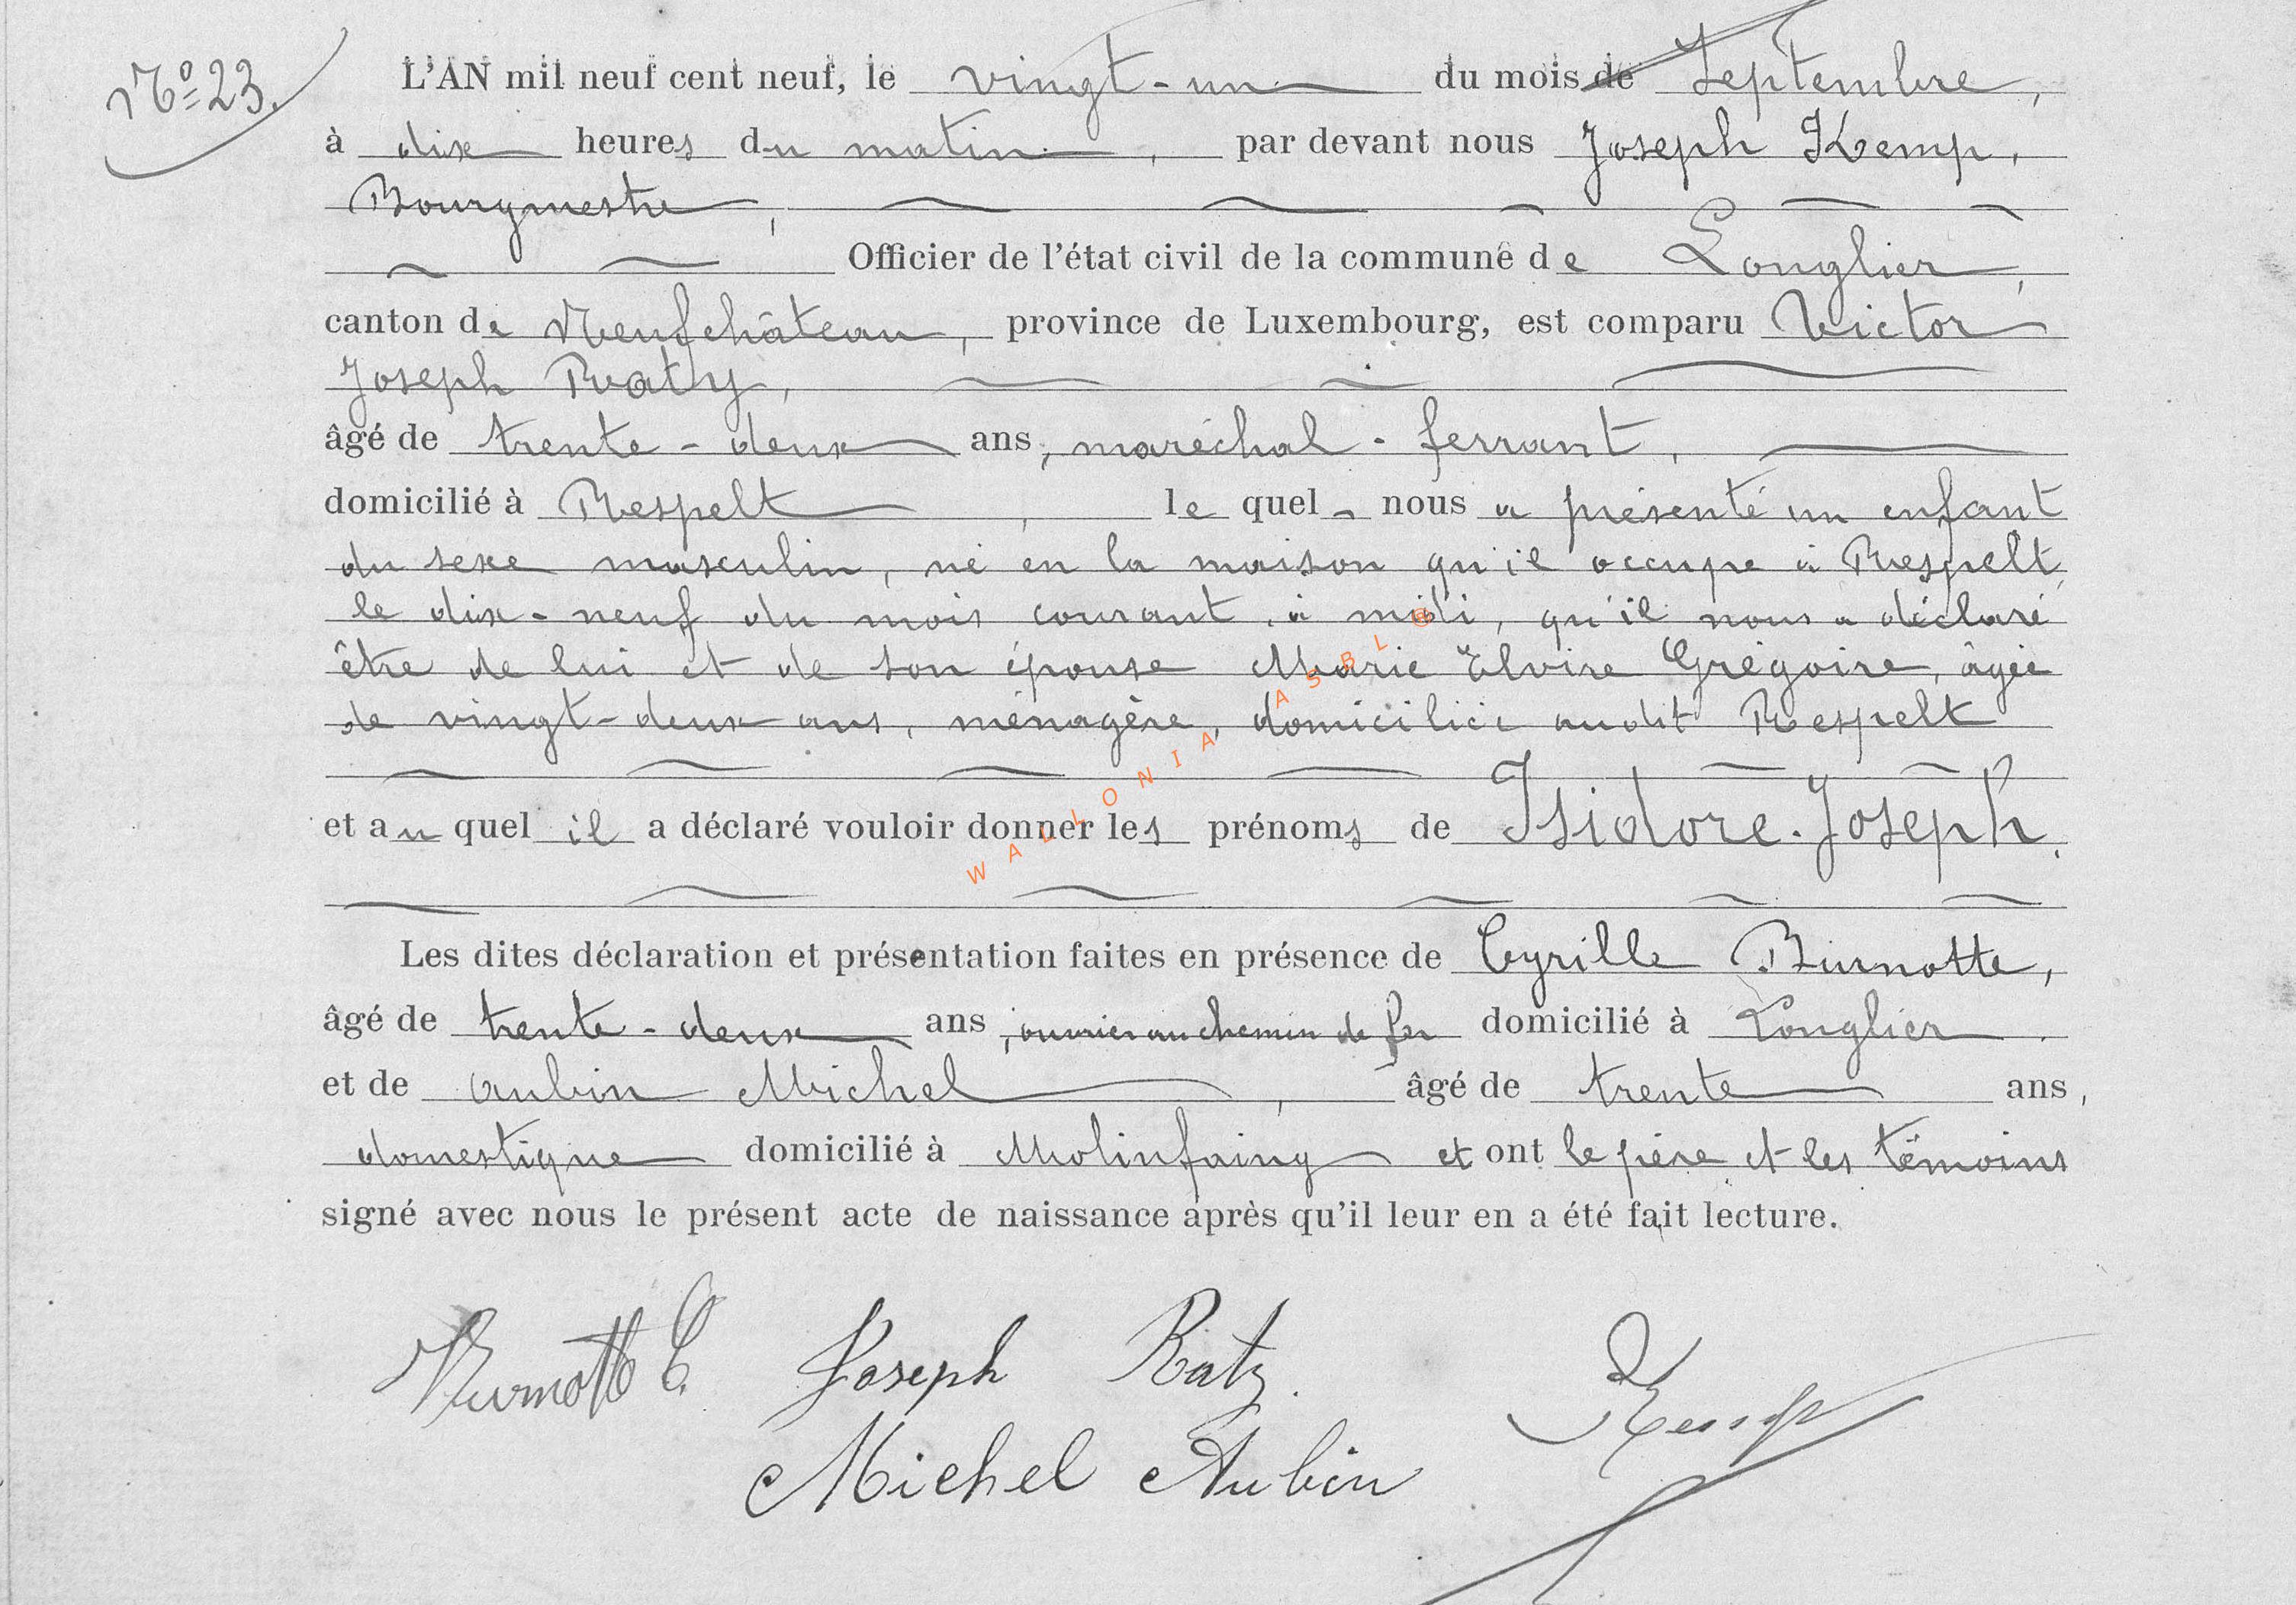 Nº 23.
L'AN mil neuf cent neuf, le vingt-un du mois de Septembre,
à dix heures du matin, par devant nous Joseph Kemp,
Bourgmestre,
Officier de l'état civil de la commune de Longlier,
canton de Neufchâteau, province de Luxembourg, est comparu Victor
Joseph Raty,
âgé de trente-deux ans, maréchal-ferrant,
domicilié à Respelt, le quel nous a présenté un enfant
du sexe masculin, né en la maison qu'il occupe à Respelt,
le dix-neuf du mois courant, à midi, qu'il nous a déclaré
être de lui et de son épouse Marie Elvire Grégoire, âgée
de vingt-deux ans, ménagère, domiciliée audit Respelt
et au quel il a déclaré vouloir donner les prénoms de Isidore-Joseph.
Les dites déclaration et présentation faites en présence de Cyrille Burnotte,
âgé de trente-deux ans, ouvrier au chemin de fer domicilié à Longlier.
et de Aubin Michel, âgé de trente ans,
domestique domicilié à Molinfaing et ont le père et les témoins
signé avec nous le présent acte de naissance après qu'il leur en a été fait lecture.
Burnotte C. Joseph Raty. Kemp
Michel Aubin
WALLONIA ASBL ®